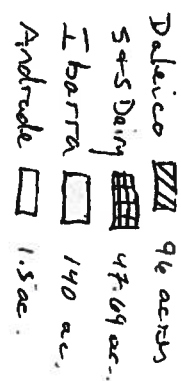 Daleico 96 acres
S+S Dairy 47.69 ac.
Ibarra 140 ac.
Andrade 1.5 ac.